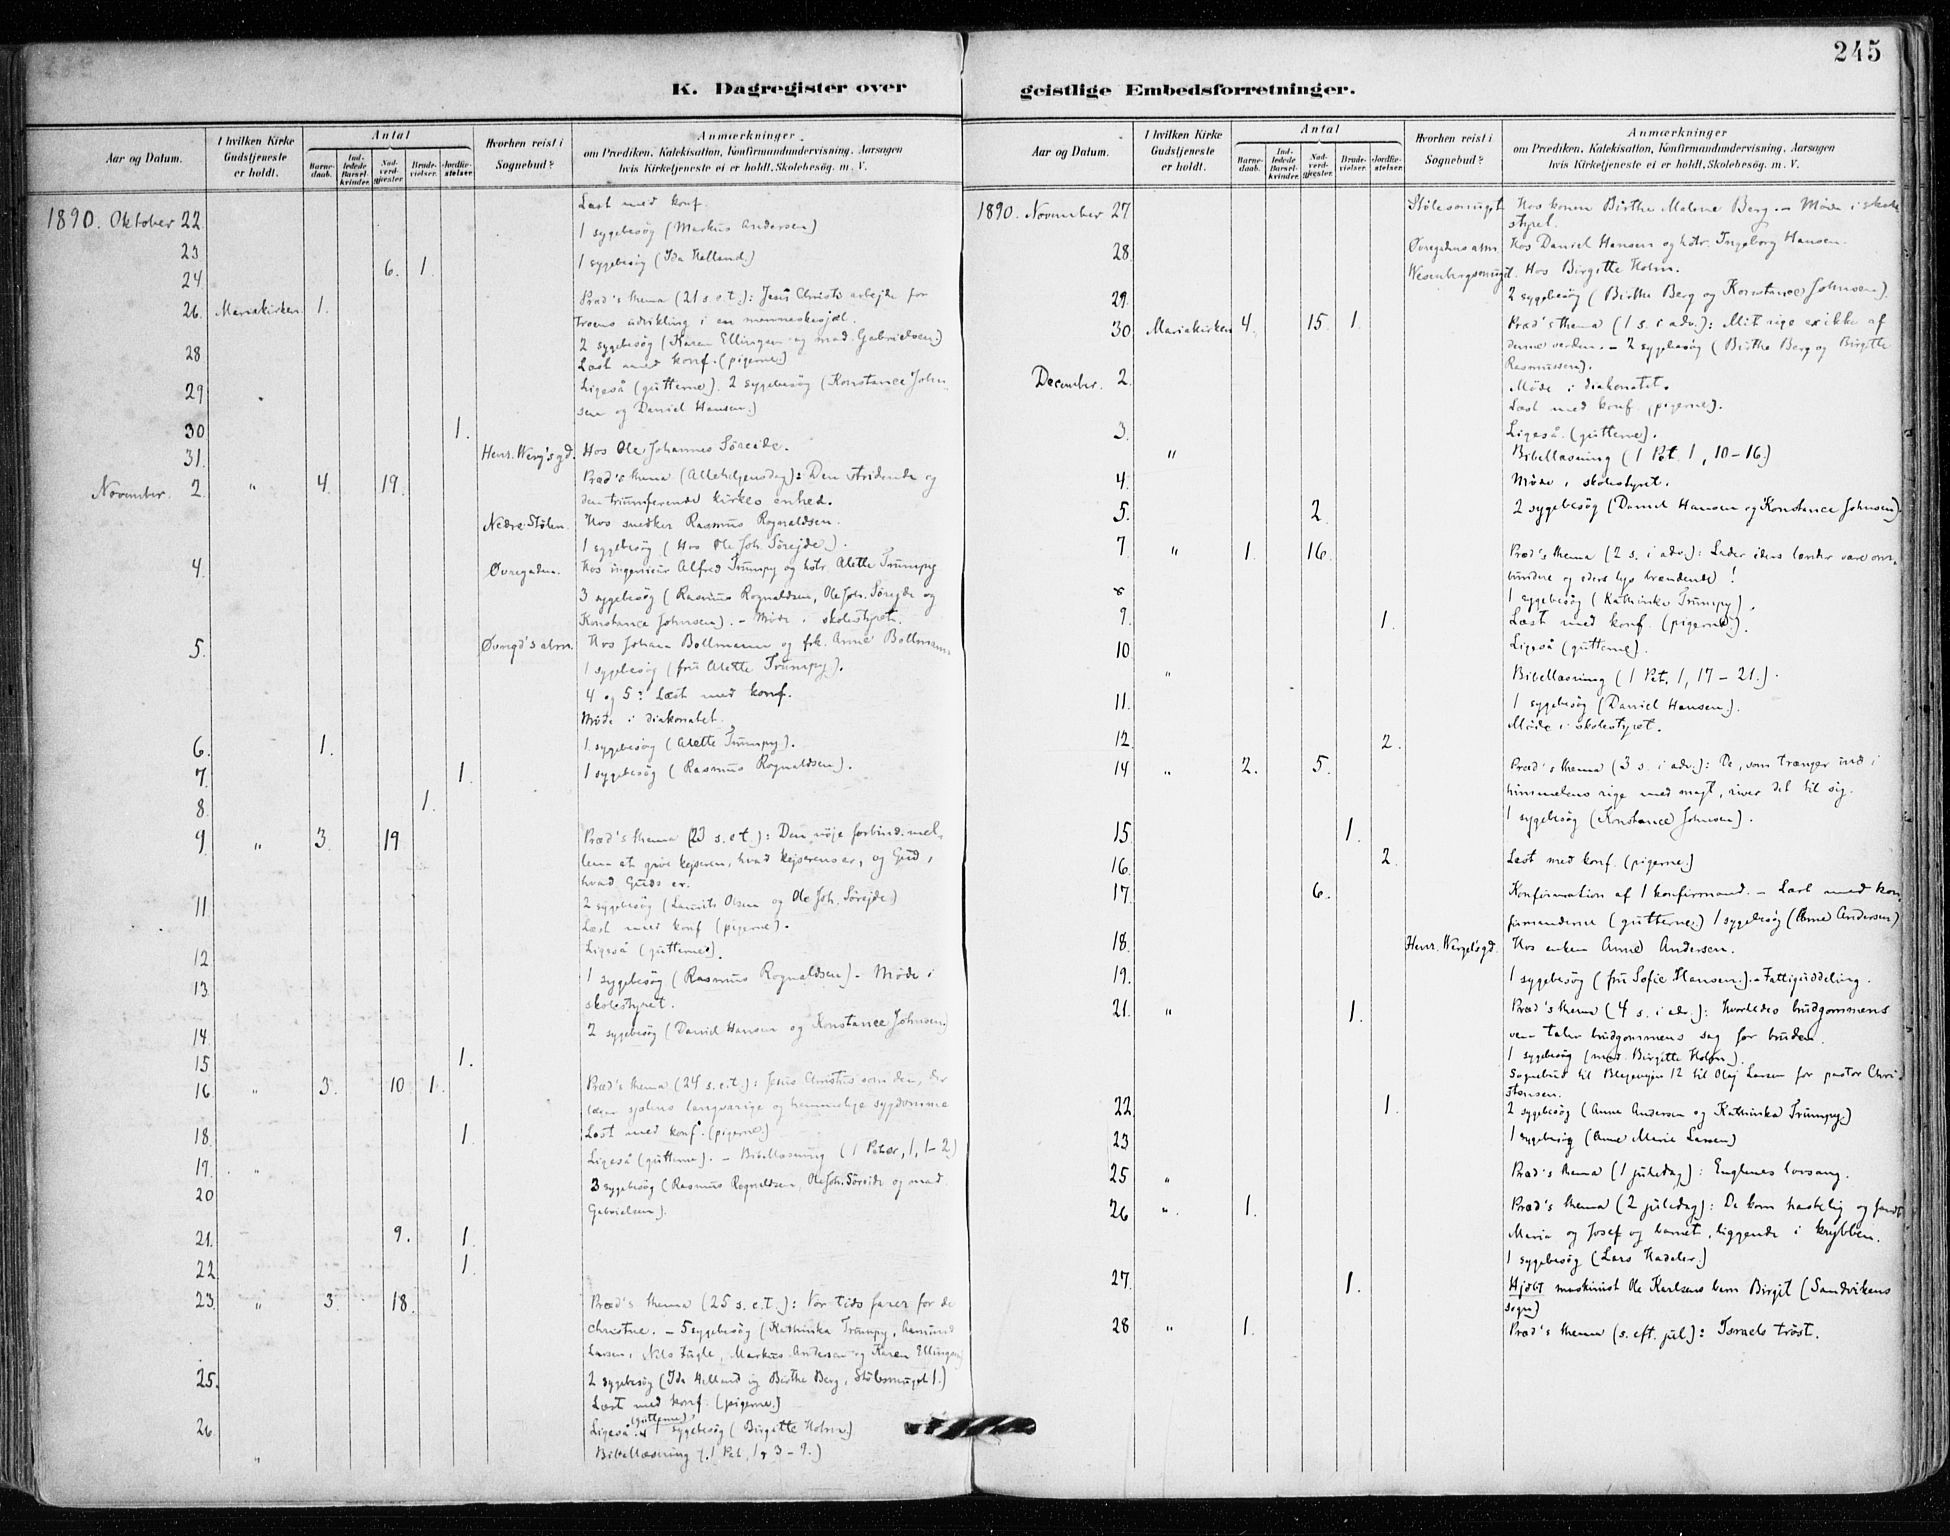 245
K. Dagregister over geistlige Embedsforretninger.
Aar og Datum. I hvilken Kirke Gudstjeneste er holdt. Antal Barnedaab. Indledede Barselkvinder. Nadverdgjester. Brudevielser. Jordfæstelser. Hvorhen reist i Sognebud? Anmærkninger om Prædiken, Katekisation, Konfirmandundervisning, Aarsagen hvis Kirketjeneste ei er holdt, Skolebesög. m. V.
1890. Oktober 22. Læst med konf.
1 sygebesög (Markus Andersen)
23 1 sygebesög (Ida Helland.)
24 6. 1.
26. Mariakirken 1. Præd's thema (21 s. e. t.): Jesu Christi arbejde for
troens udvikling i en menneskesjæl.
2 sygebesög (Karen Ellingsen og mad. Gabrielsen.)
28 Læst med konf. (pigerne.)
29 Ligeså (gutterne). 2 sygebesög (Konstance John-
sen og Daniel Hansen.)
30 1.
31. Henr. Werg's gd. Hos Ole Johannes Söreide.
November. 2. " 4. 19. Præd's thema (Allehelgensdag): Den stridende og
den triumferende kirkes enhed.
Nedre Stölen. Hos snedker Rasmus Rognaldsen.
1 sygebesög (Hos Ole Joh. Sörejde).
4. Øvregaden. Hos ingeniör Alfred Trumpy og hstr Alette Trumpy
3 sygebesög (Rasmus Rognaldsen, Ole Joh. Sörejde og
Konstance Johnsen). – Möde i skolestyret.
5. Øvregd's alm. Hos Johan Bollmann og frk. Anne Bollmann
1 sygebesög (fru Alette Trumpy).
4 og 5: Læst med konf.
Möde i diakonatet.
6. 1. 1 sygebesög (Alette Trumpy).
7. 1. 1 sygebesög (Rasmus Rognaldsen).
8. 1.
9. " 3. 19 Præd's thema (23 s. e. t.): Den nöje forbind. mel-
lem at give kejseren, hvad kejserens er, og Gud,
hvad Guds er.
11. 2 sygebesög (Laurits Olsen og Ole Joh. Sörejde.)
Læst med konf (pigerne).
12 Ligeså (gutterne).
13. 1 sygebesög (Rasmus Rognaldsen) – Möde i
skolestyret.
14. 2 sygebesög (Daniel Hansen og Konstance Johnsen.)
15 1.
16 " 3. 10 1. Præd's thema (24 s. e. t.): Jesus Christus som den, der
læger sjælens langvarige og hemmelige sygdomme
18. 1. Læst med konf. (pigerne)
19. " Ligeså (gutterne). – Bibellæsning (1 Peter, 1, 1-2.)
20 3 sygebesög (Rasmus Rognaldsen, Ole Joh. Söreide og mad.
Gabrielsen).
21. 9. 1.
22 1.
23. " 3. 18. Præd's thema (25 s. e. t.): Vor tids farer for de
christne. – 5 sygebesög (Kathinka Trumpy,
Larsen, Nils Fugle, Markus Andersen og Karen Ellingsen)
25. 2 sygebesög (Ida Helland og Birthe Berg, Stölesmuget 1.)
Læst med konf. (pigerne.)
26 Ligeså (gutterne) 1 sygebesög (Birgitte Holm.)
" Bibellæsning (1 Pet. 1, 3-9.)
Aar og Datum. I hvilken Kirke Gudstjeneste er holdt. Antal Barnedaab. Indledede Barselkvinder. Nadverdgjester. Brudevielser. Jordfæstelser. Hvorhen reist i Sognebud? Anmærkninger om Prædiken, Katekisation, Konfirmandundervisning, Aarsagen hvis Kirketjeneste ei er holdt, Skolebesög. m. V.
1890. November 27 Stölesmuget Hos konen Birthe Malene Berg. – Möde i skole
styret.
28 Øvregadens alm. Hos Daniel Hansen og hstr. Ingeborg Hansen.
Wesenbergsmuget. Hos Birgitte Holm.
29. 2 sygebesög (Birthe Berg og Konstance Johnsen)
30 Mariakirken 4. 15. 1. Præd's thema (1 s. i adv.): Mit rige er ikke af
denne verden. – 2 sygebesög (Birthe Berg og Birgitte
Rasmussen).
December. 2. Möde i diakonatet.
Læst med konf. (pigerne).
3. Ligeså. (gutterne).
" Bibellæsning (1 Pet. 1, 10-16.)
4. Möde i skolestyret.
5. 2 2 sygebesög (Daniel Hansen og Konstance Johnsen)
7 " 1. 16. Præd's thema (2 s. i adv.): Lader eders lænder være om-
bundne og eders lys brændende!
8 1 sygebesög (Kathinka Trumpy).
9. 1. Læst med konf. (pigerne).
10 Ligeså (gutterne).
" Bibellæsning (1 Pet. 1, 17-21.).
11. 1 sygebesög (Daniel Hansen.).
Möde i skolestyret.
12. 2.
14 " 2. 5. Præd's thema (3 s. i adv.): De, som trænger ind i
himmelens rige med magt, river det til sig.
1 sygebesög (Konstance Johnsen).
15 1.
16. 2. Læst med konf. (pigerne.)
17 6. Konfirmation af 1 konfirmand. – Læst med kon-
firmanderne (gutterne) 1 sygebesög (Anne Andersen)
18. Henr. Wergel's gd. Hos enken Anne Andersen.
19. 1 sygebesög (fru Sofie Hansen.). – Fattiguddeling.
21. " 1. Præd's thema (4 s. i adv.): Hvorledes brudgommens
ven taler brudgommens sag for bruden.
1 sygebesög (mad. Birgitte Holm).
Sognebud til 12 til Olaj Larsen for pastor Chri-
stensen.
22 1. 2 sygebesög (Anne Andersen og Kathinka Trumpy.)
23 1 sygebesög (Anne Marie Larsen)
25 " Præd's thema (1 juledag): Englenes lovsang.
26 " 1. Præd's thema (2 juledag): De kom hastelig og fandt
Maria og Josef og barnet, liggende i krybben.
1 sygebesög (Lars Hadeler.)
27. 1. Hjdöbt maskinist Ole Karlsens barn Birgit (Sandvikens
sogn)
28 " 1. Præd's thema (s. eft. jul): Israels tröst.